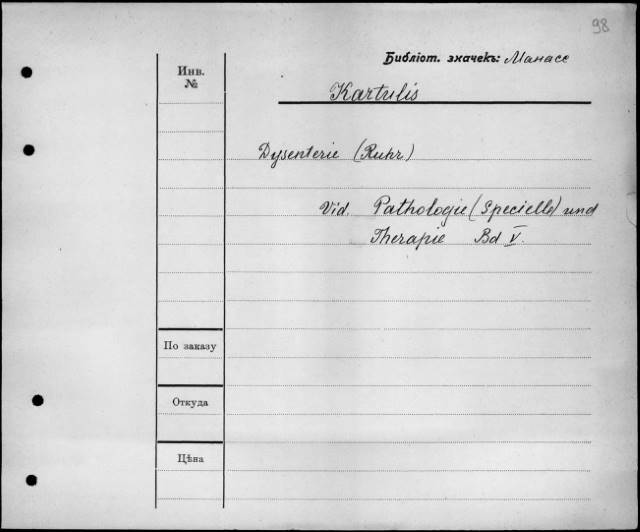 98
Библіот. значекъ: Манасе
Инв.
№
Kartulis
Dysenterie (Ruhr)
Vid. Pathologie (Specielle) und
Therapie Bd V.
По заказу
Откуда
Цѣна